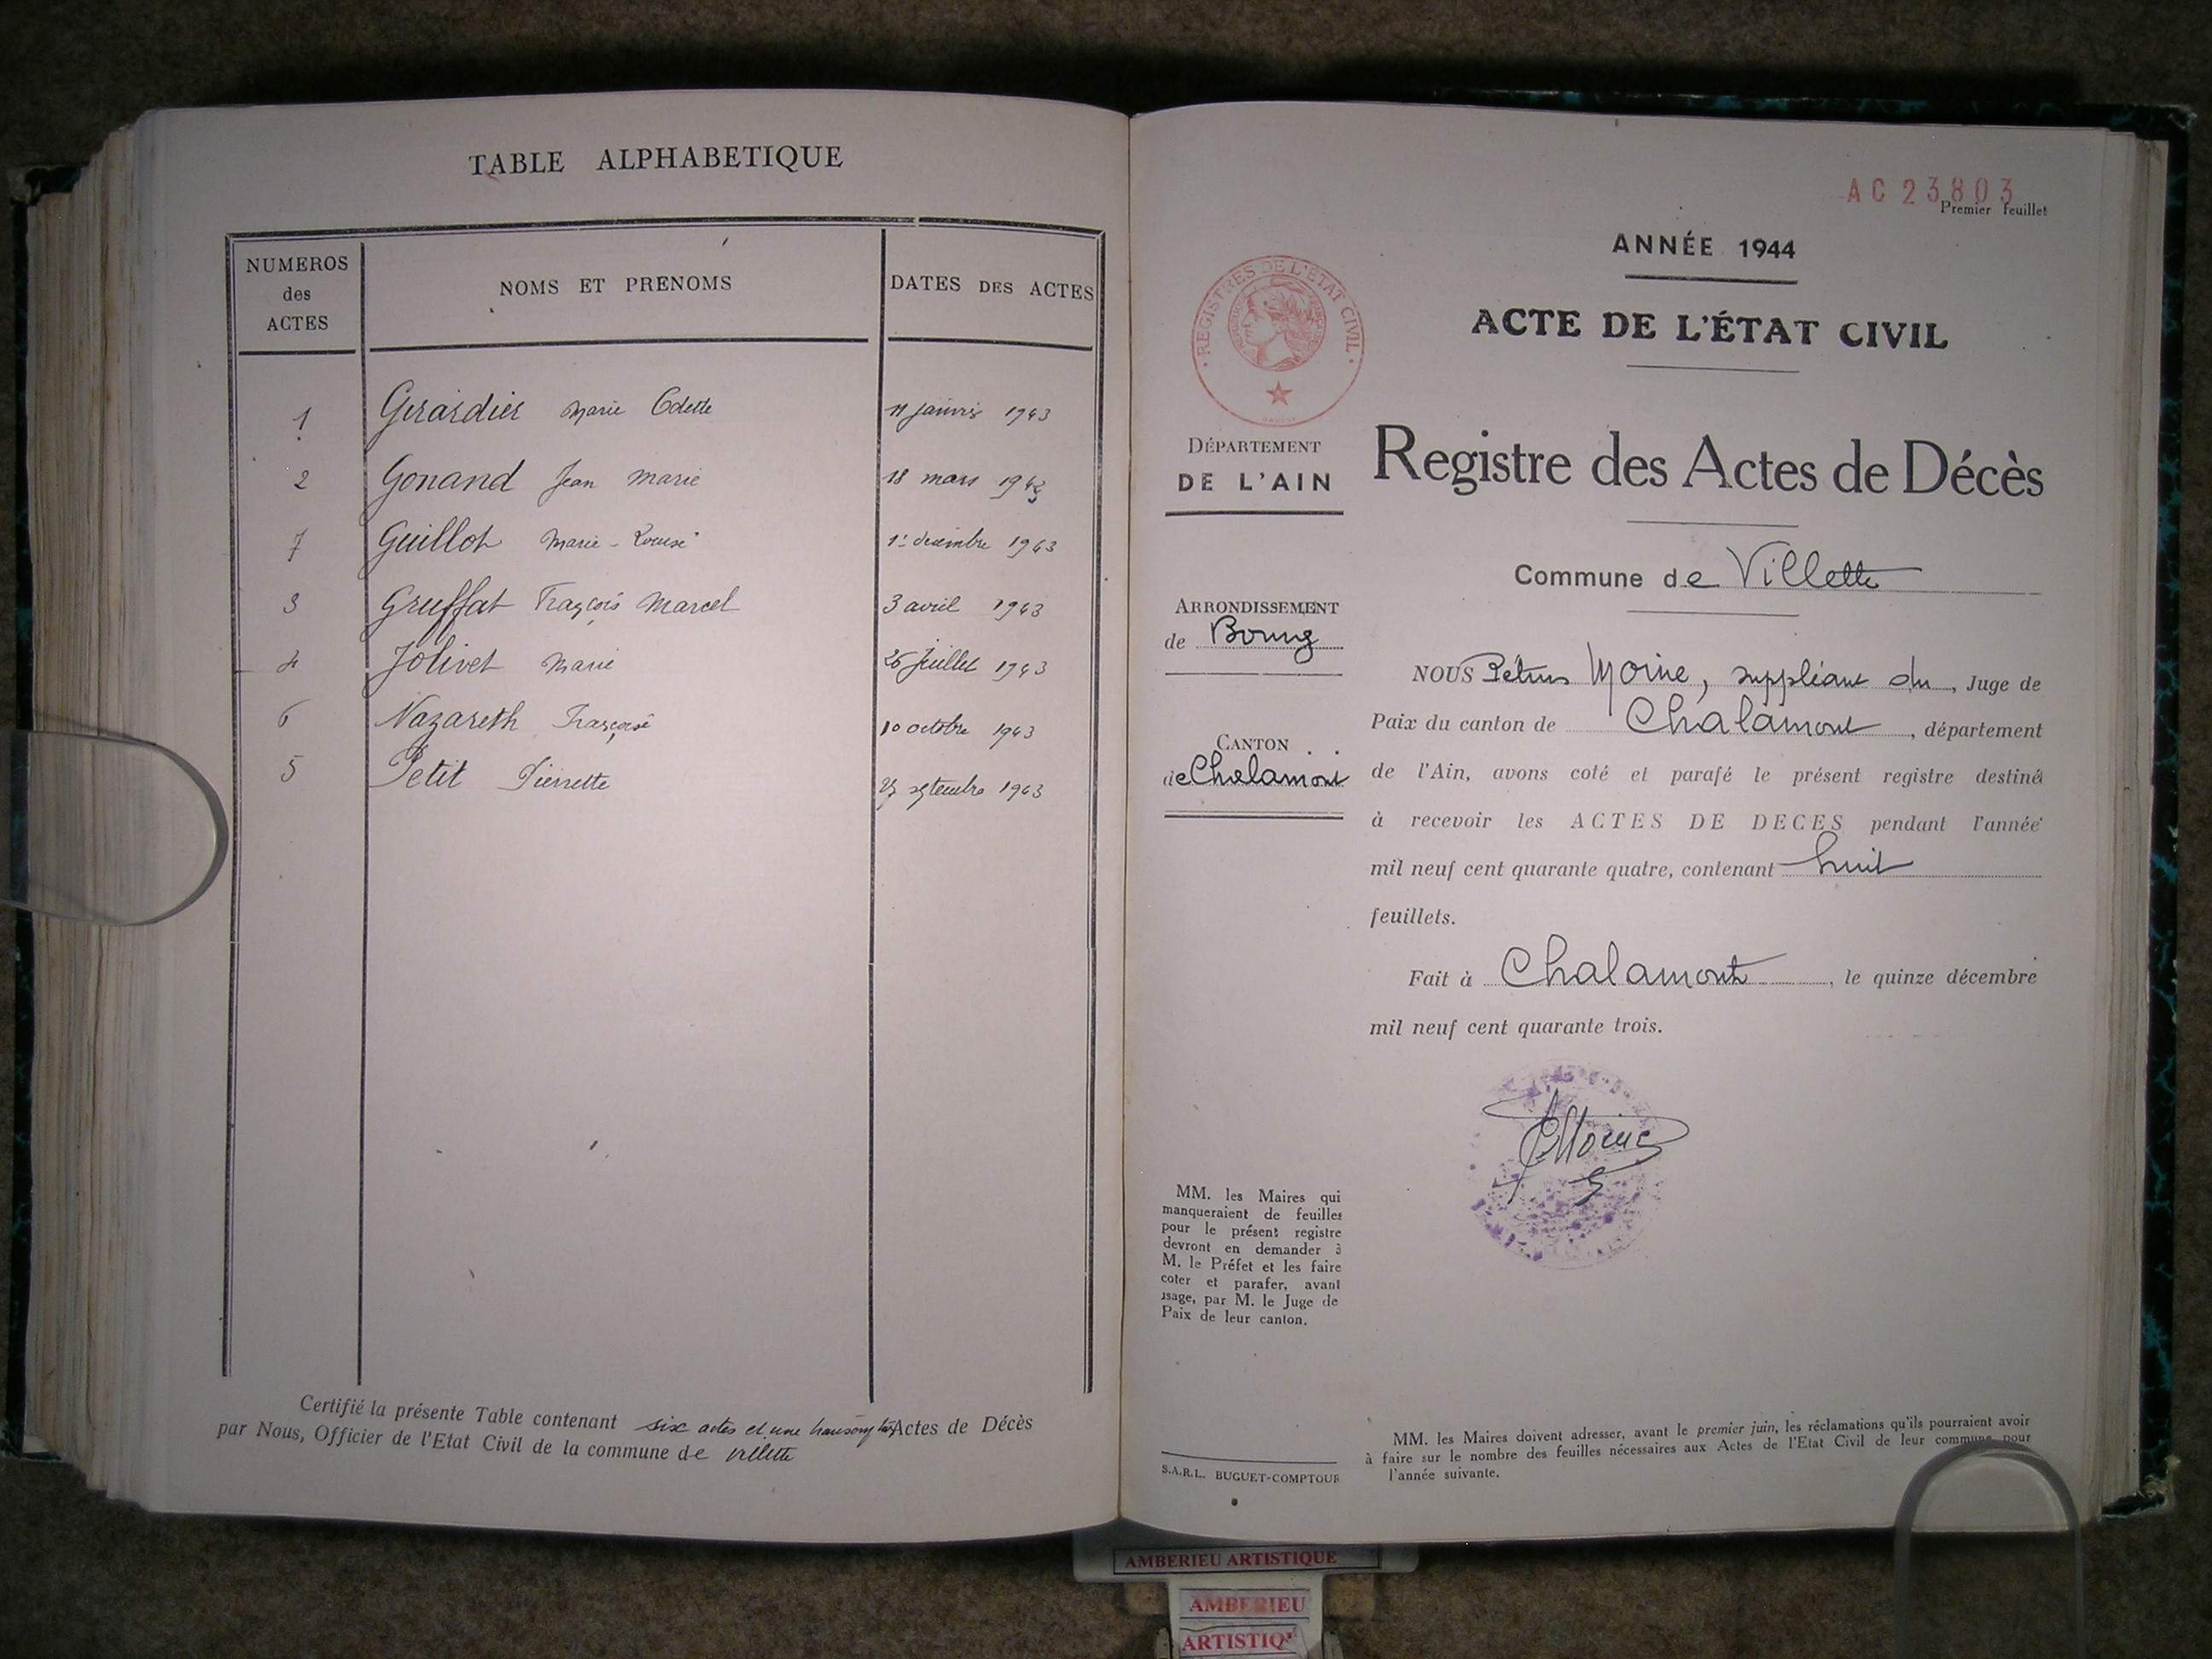 TABLE ALPHABETIQUE
NUMEROS des ACTES NOMS ET PRENOMS DATES DES ACTES
1 Girardier Marie Odette 11 janvier 1943
2 Gonand Jean Marie 18 mars 1943
7 Guillot Marie-Louise 1er décembre 1943
3 Gruffat François Marcel 3 avril 1943
4 Jolivet Marie 26 juillet 1943
6 Nazareth Françoise 10 octobre 1943
5 Petit Pierrette septembre 1943
Certifié la présente Table contenant six actes et une Actes de Décès
par Nous, Officier de l'Etat Civil de la commune de villette
AC 23803
Premier feuillet
ANNÉE 1944
ACTE DE L'ÉTAT CIVIL
REGISTRES DE L'ÉTAT CIVIL
DÉPARTEMENT
DE L'AIN
Registre des Actes de Décès
Commune de Villette
ARRONDISSEMENT
de Bourg
CANTON
de Chalamont
NOUS Pétrus Moine, suppléant du, Juge de
Paix du canton de Chalamont, département
de l'Ain, avons coté et parafé le présent registre destiné
à recevoir les ACTES DE DECES pendant l'année
mil neuf cent quarante quatre, contenant huit
feuillets.
Fait à Chalamont, le quinze décembre
mil neuf cent quarante trois.
PMoine
MM. les Maires qui
manqueraient de feuilles
pour le présent registre
devront en demander à
M. le Préfet et les faire
coter et parafer, avant
usage, par M. le Juge de
Paix de leur canton.
S.A.R.L. BUGUET-COMPTOUR
MM. les Maires doivent adresser, avant le premier juin, les réclamations qu'ils pourraient avoir
à faire sur le nombre des feuilles nécessaires aux Actes de l'Etat Civil de leur commune pour
l'année suivante.
AMBERIEU ARTISTIQUE
AMBERIEU
ARTISTIQ